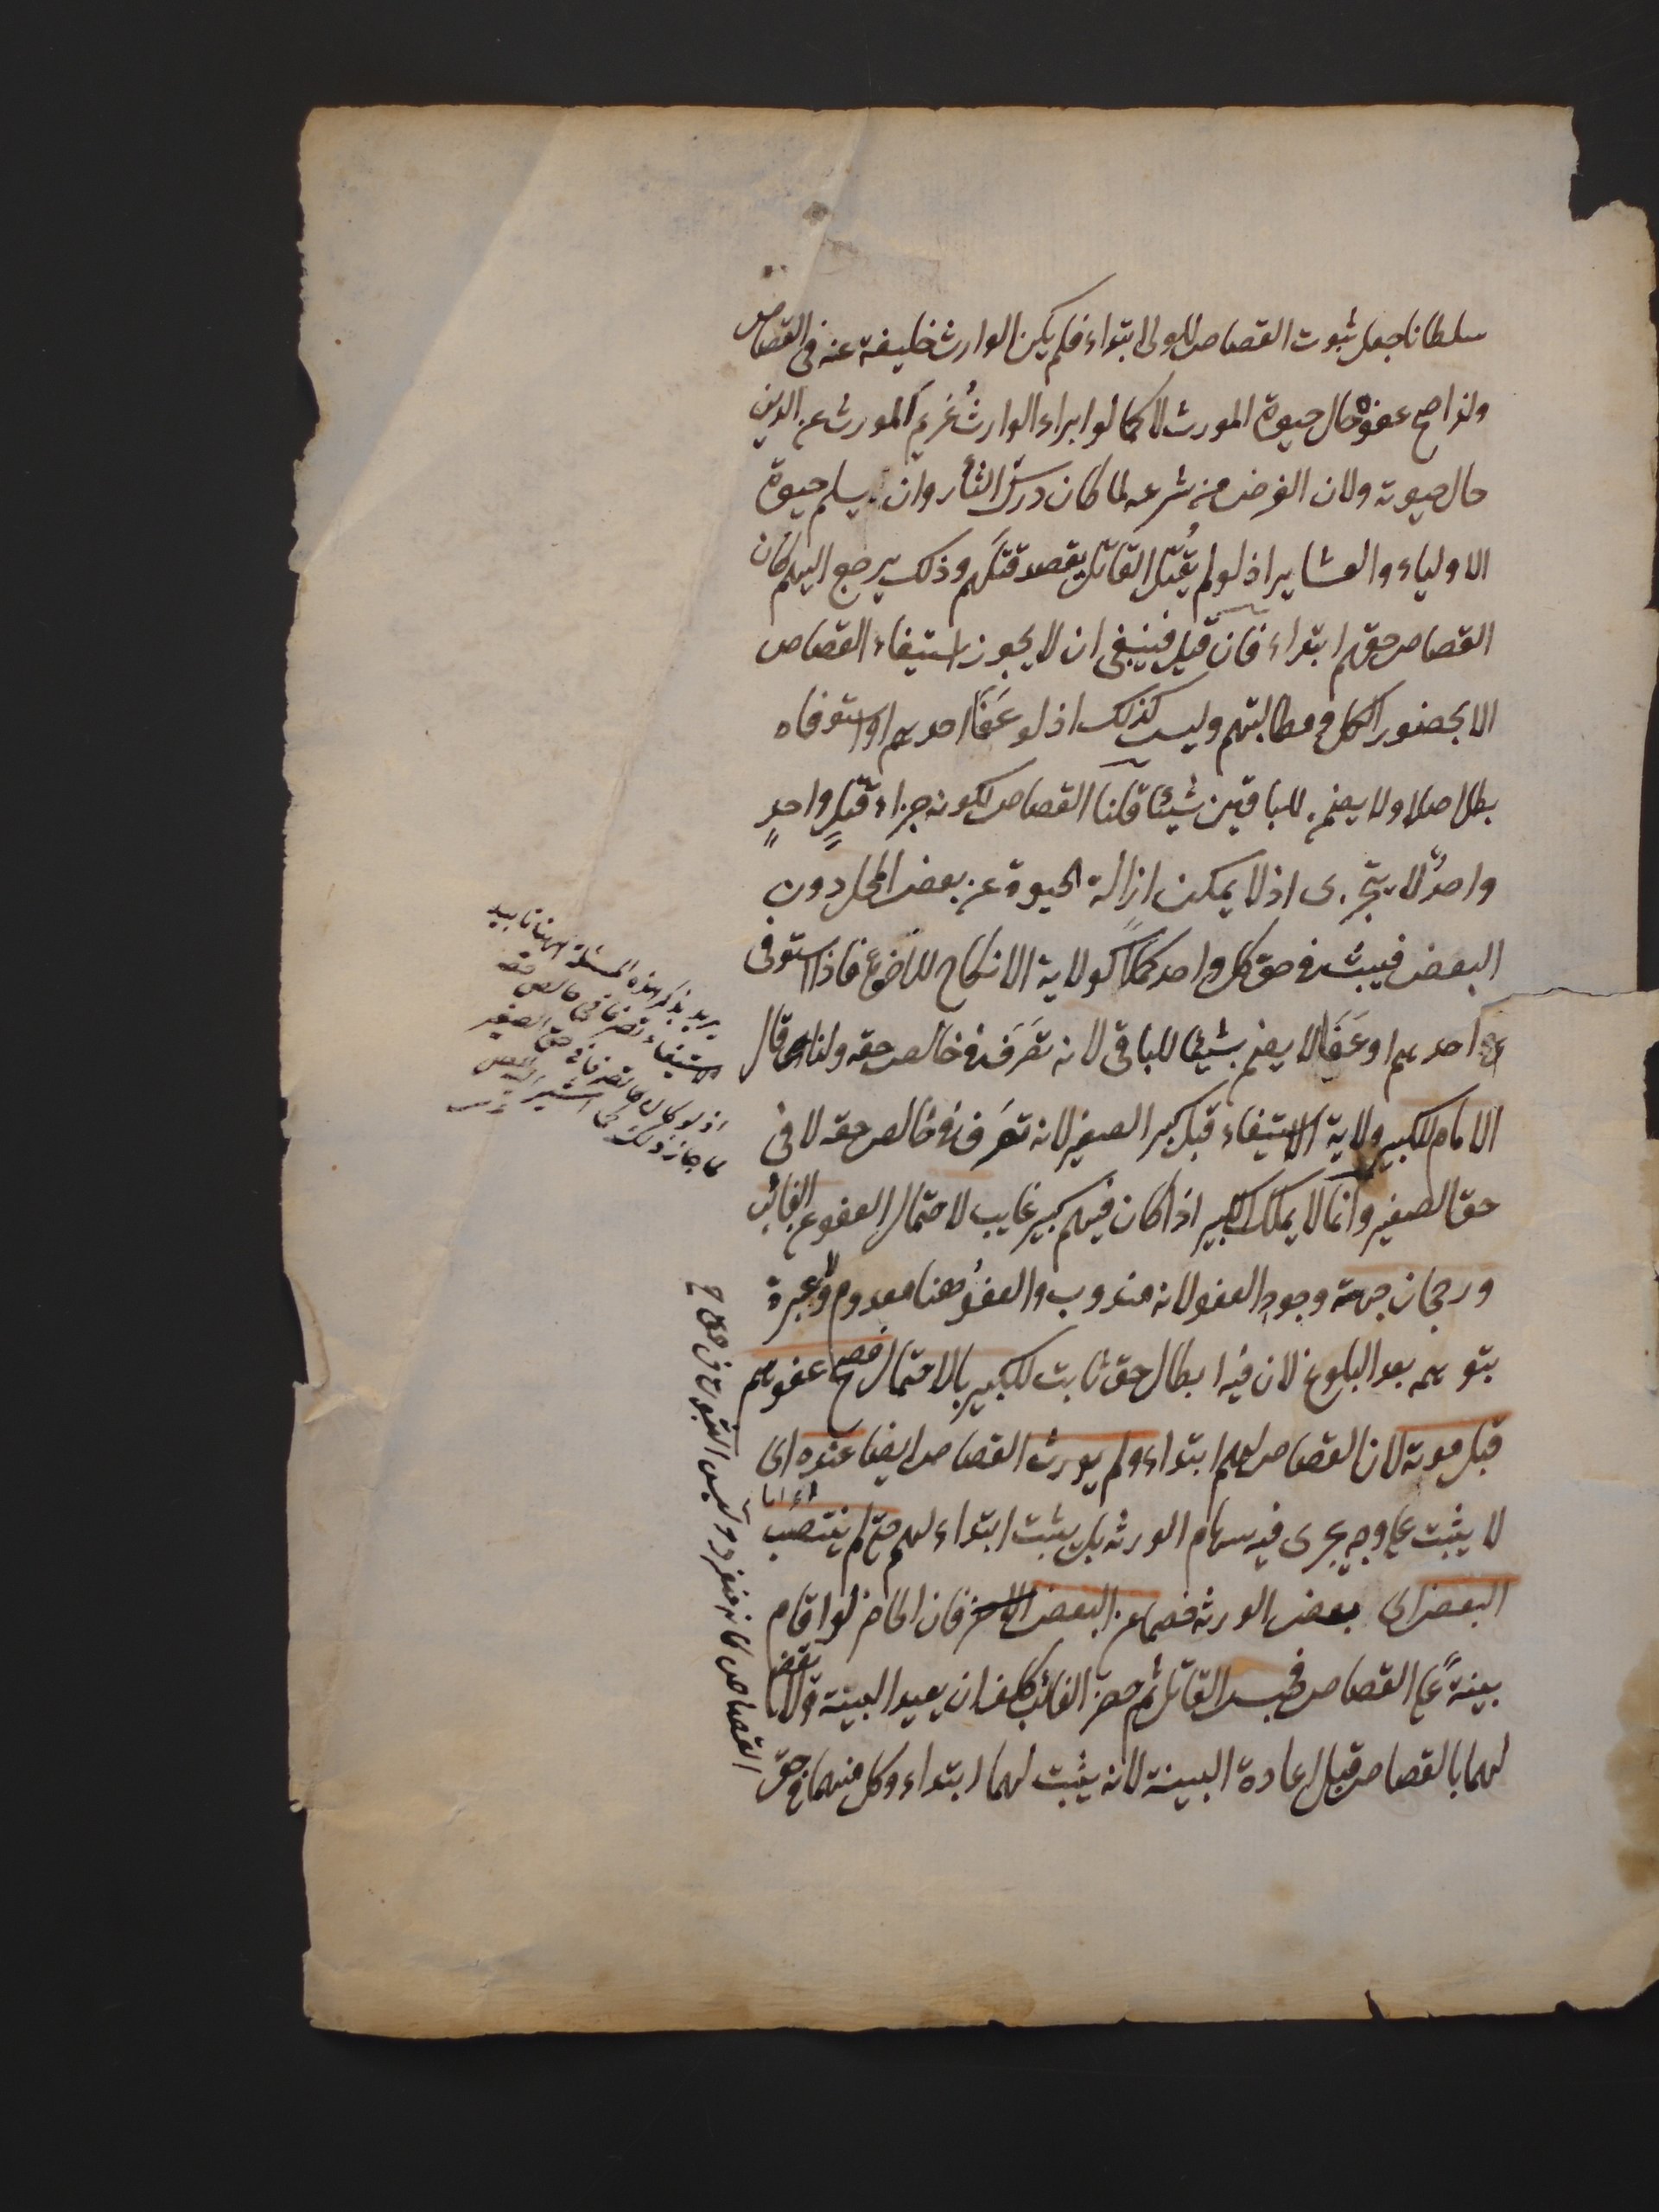 سلطانا جعل ثبوت القصاص للولى ابتداء فلم يكن الوارث خليفة عنه فى القصاص
ولذا صح عفوه حال حيوة المورث لا كما لو ابراء الوارثُ غريمَ المورث عن الدين
حال حيوته ولان الغرض من شرعه لما كان درك الثأر وان يسلم حيوة
الاولياء والعشاير اذ لو لم يُقتل القاتل يقصد قتلهم وذلك يرجع اليهم كان
القصاص حقهم ابتداء فان قيل فينبغى ان لا يجوز استيفاء القصاص
الا بحضور الكل ومطالبتهم وليس كذلك اذ لو عَفَا احدهم او استوفاه
بطل اصلا ولا يضمن للباقين شيئا قلنا القصاص لكونه جزاء قتلٍ واحدٍ
واحدٌ لا يتجزى اذ لا يمكن ازالة الحيوة عن بعض المحل دون
البعض فيثبت فى حق كل واحد كملا كولاية الانكاح للاخوة فاذا استوفى
احدهم او عَفَا لا يضمن شيئا للباقى لانه تصَرَفَ فى خالص حقه ولذا قال
الامام للكبير ولاية الاستيفاء قبل كبر الصغير لانه تصَرف فى خالص حقه لا فى
حق الصغير وانما لا يملك الكبير اذا كان فيهم كبير غايب لاحتمال العفو عن الغائب
ورجحان جهة وجود العفو لانه مندوب والعفوُ هنا معدوم ولا عبرة
بتوهمه بعد البلوغ لان فيه ابطال حق ثابت للكبير بالاحتمال فصح عفوهم
قبل موته لان القصاص لهم ابتداء ولم يورث القصاص ايضا عنده اى
لا يثبت على وجه يجرى فيه سهام الورثة بل يثبت ابتداء لهم حتى لم ينتصب
البعض اى بعض الورثة خصما عن البعض فان الحاضر لو اقام
بينةً على القصاص فحبس القاتل ثم حضر الغائب كلف ان يعيد البينة ولا يقضى
لهما بالقصاص قبل اعادة البينة لانه يثبت لهما ابتداء وكل منهما فى حق
القصاص كانه منفرد وليس الثبوت فى حق
يريد بذكر هذه المسئلة هنا تاييد
الاستيفاء تصرفا فى خالص حقه
اذ لو كان تصرفا فى حق الصغير
لما جاز ذلك